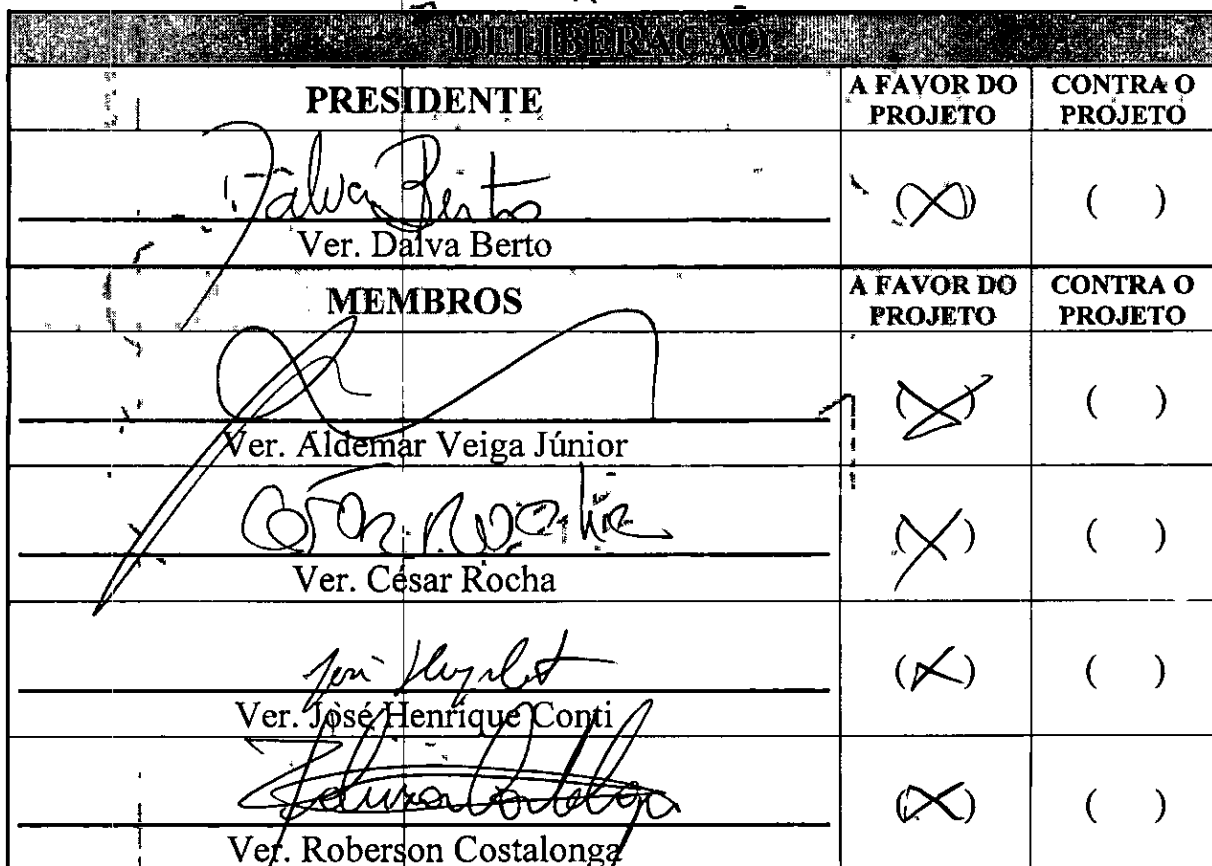 DELIBERAÇÃO
PRESIDENTE
A FAVOR DO PROJETO
CONTRA O PROJETO
Dalva Berto
(X) ( )
Ver. Dalva Berto
MEMBROS
A FAVOR DO PROJETO
CONTRA O PROJETO
(X) ( )
Ver. Aldemar Veiga Júnior
César Rocha
(X) ( )
Ver. César Rocha
José
(X) ( )
Ver. José Henrique Conti
(X) ( )
Ver. Roberson Costalonga